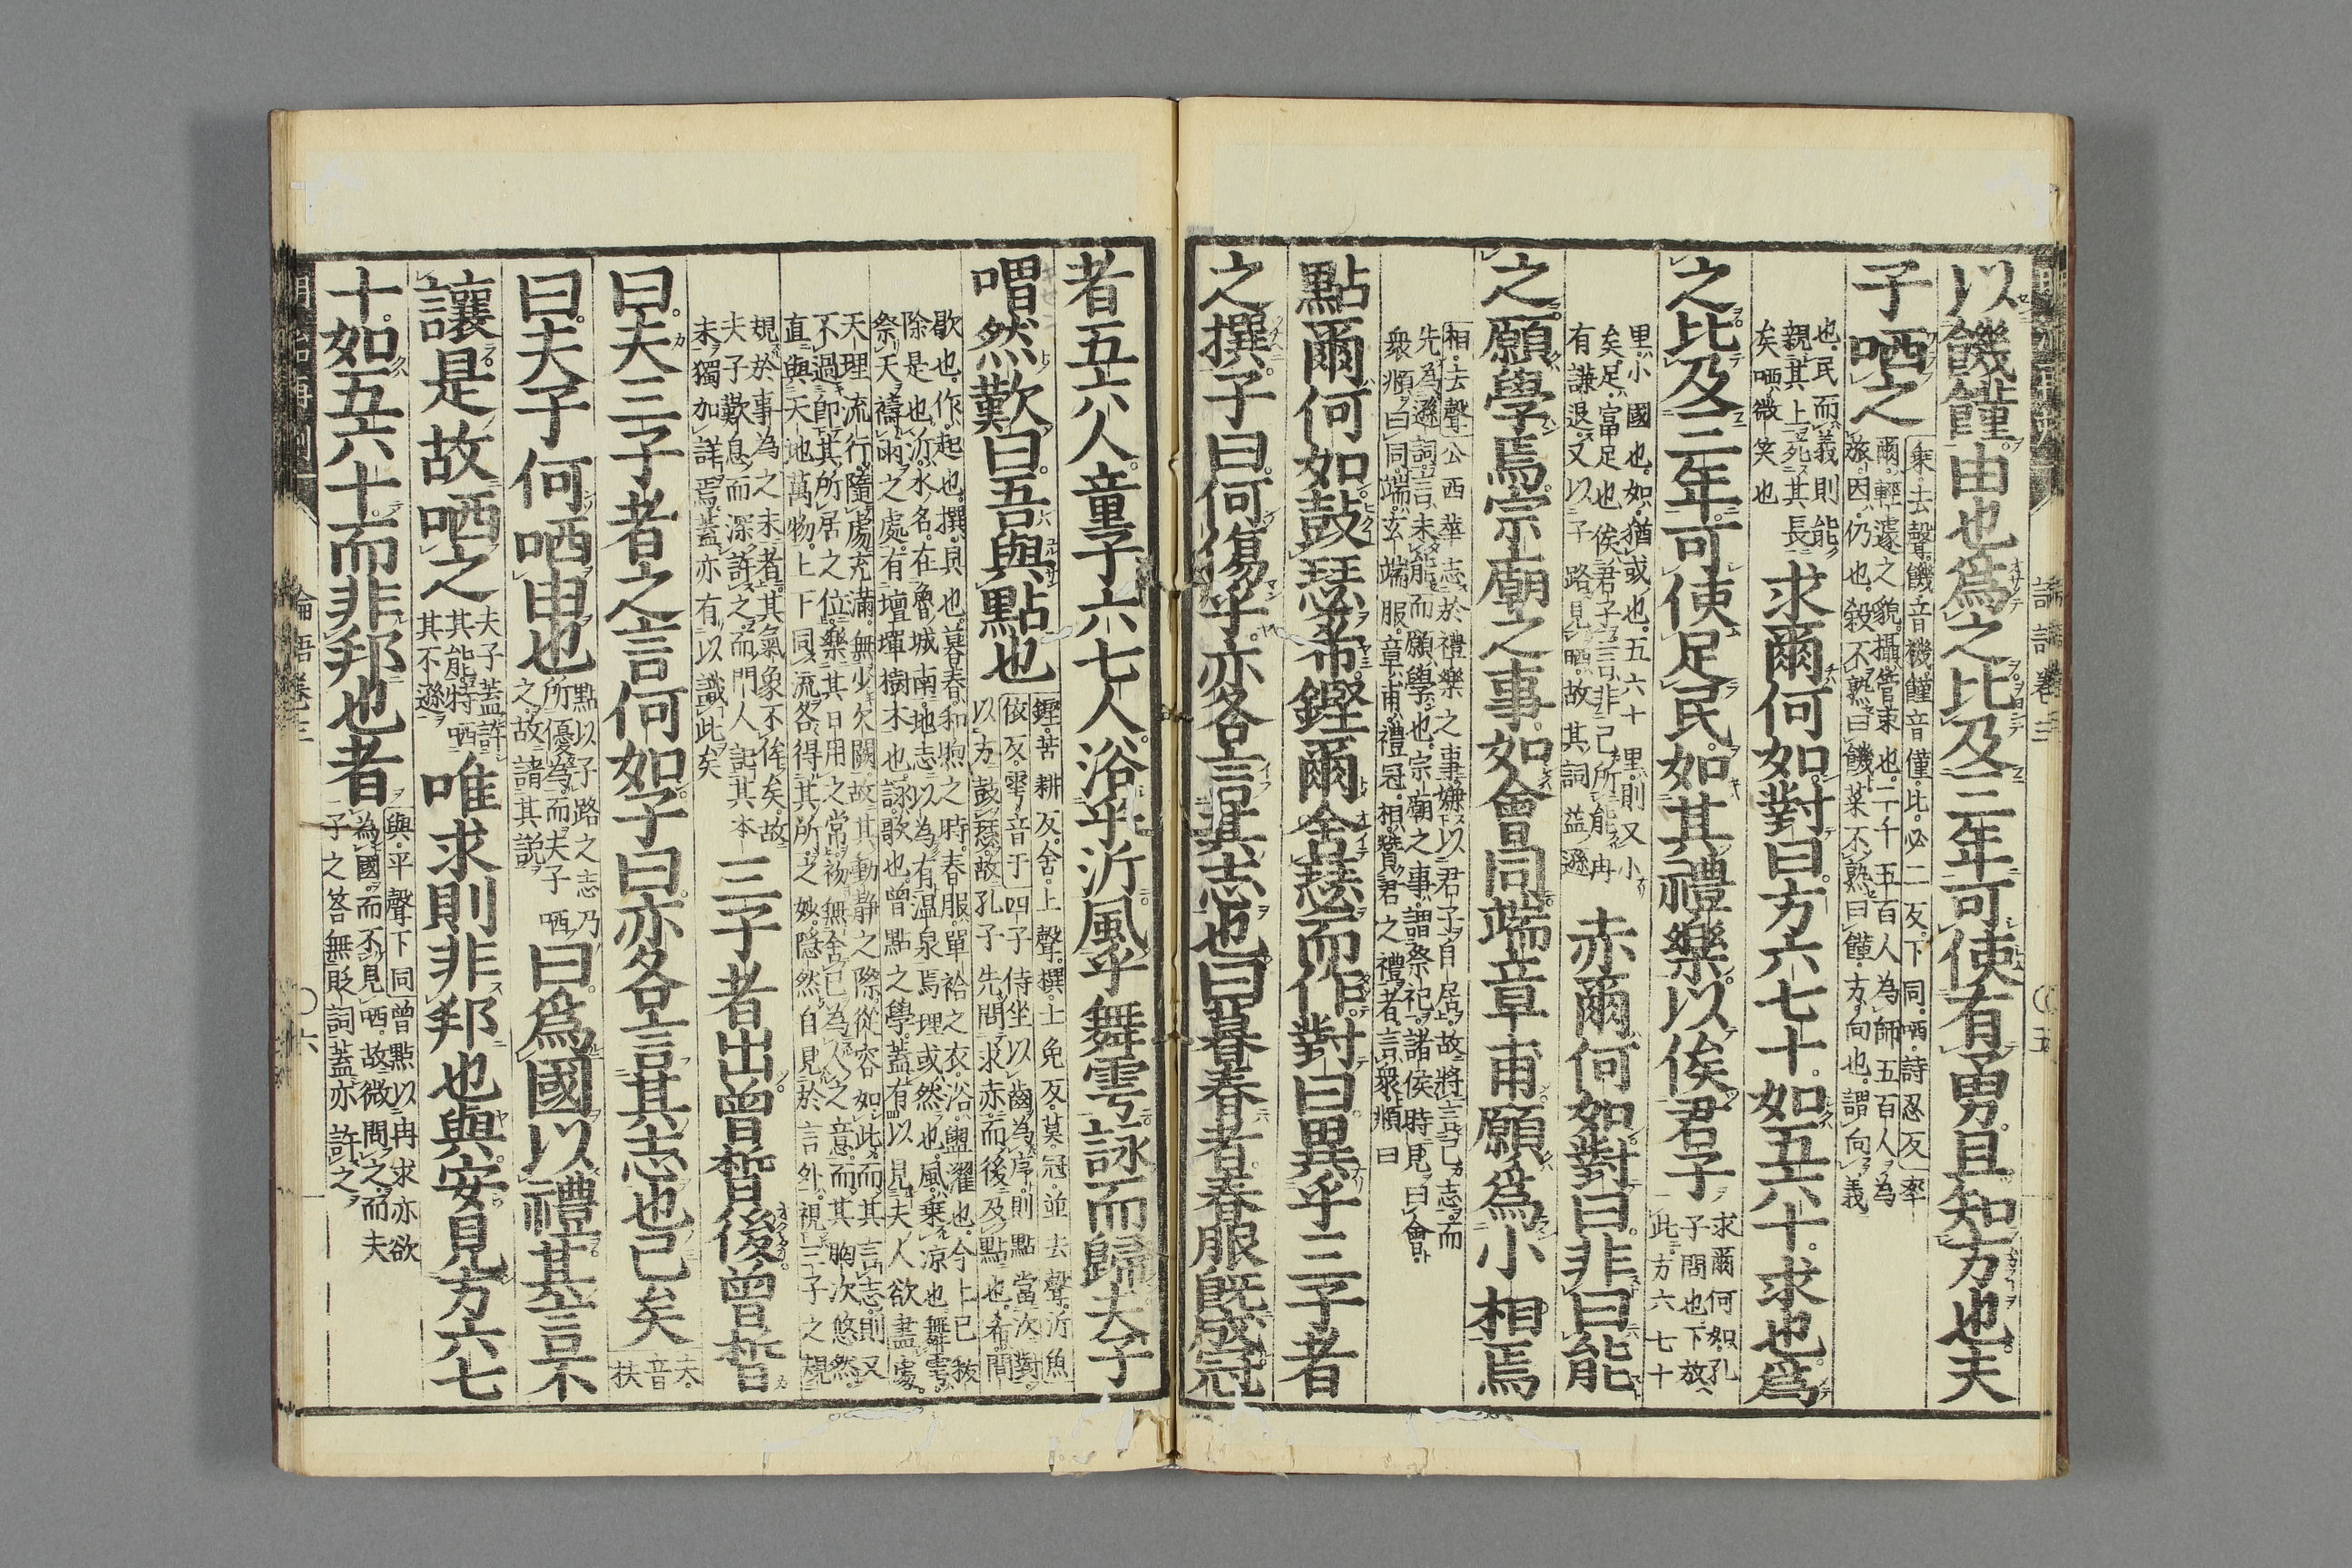 論語卷三
五
以饑饉由也爲之比及三年可使有勇且知方也夫
子哂之
乘去聲饑音機饉音僅比必二反下同哂詩忍反率
爾輕遽之貌攝管束也二千五百人為師五百人為
旅因仍也穀不熟曰饑菜不熟曰饉方向也謂向義
也民而義則能
親其上死其長
矣哂微笑也
求爾何如對曰方六七十如五六十求也爲
之比及三年可使足民如其禮樂以俟君子
求爾何如孔
子問也下放
此方六七十
里小國也如猶或也五六十里則又小
矣足富足也俟君子言非己所能冉
有謙退又以子路見哂故其詞益遜
赤爾何如對曰非曰能
之願學焉宗廟之事如會同端章甫願爲小相焉
相去聲公西華志於禮樂之事嫌以君子自居故將言己志而
先為遜詞言未能而願學也宗廟之事謂祭祀諸侯時見曰會
衆頫曰同端玄端服章甫禮冠相贊君之禮者言衆頫曰
點爾何如鼓瑟希鏗爾舍瑟而作對曰異乎三子者
之撰子曰何傷乎亦各言其志也曰暮春者春服既成冠
者五六人童子六七人浴乎沂風乎舞雩詠而歸夫子
喟然歎曰吾與點也
鏗苦耕反舍上聲撰士免反莫冠並去聲沂魚
依反雩音于四子侍坐以齒為序則點當次對
以方鼓瑟故孔子先問求赤而後及點也希間
歇也作起也撰具也暮春和煦之時春服單袷之衣浴盥濯也今上巳祓
除是也沂水名在魯城南地志以為有温泉焉理或然也風乘涼也舞雩
祭天禱雨之處有壇墠樹木也詠歌也曾點之學蓋有以見夫人欲盡處
天理流行隨處充滿無少欠闕故其動静之際從容如此而其言志則又
不過即其所居之位樂其日用之常初無舍己為人之意而其胸次悠然
直與天地萬物上下同流各得其所之妙隱然自見於言外視三子之規
規於事為之末者其氣象不侔矣故
夫子歎息而深許之而門人記其本
末獨加詳焉蓋亦有以識此矣
三子者出曾晳後曾晳
曰夫三子者之言何如子曰亦各言其志也已矣
夫
音
扶
曰夫子何哂由也
點以子路之志乃
所優為而夫子哂
之故請其說
曰爲國以禮其言不
讓是故哂之
夫子蓋許
其能特哂
其不遜
唯求則非邦也與安見方六七
十如五六十而非邦也者
與平聲下同曾點以冉求亦欲
為國而不見哂故微問之而夫
子之答無貶詞蓋亦許之
論語卷三
六